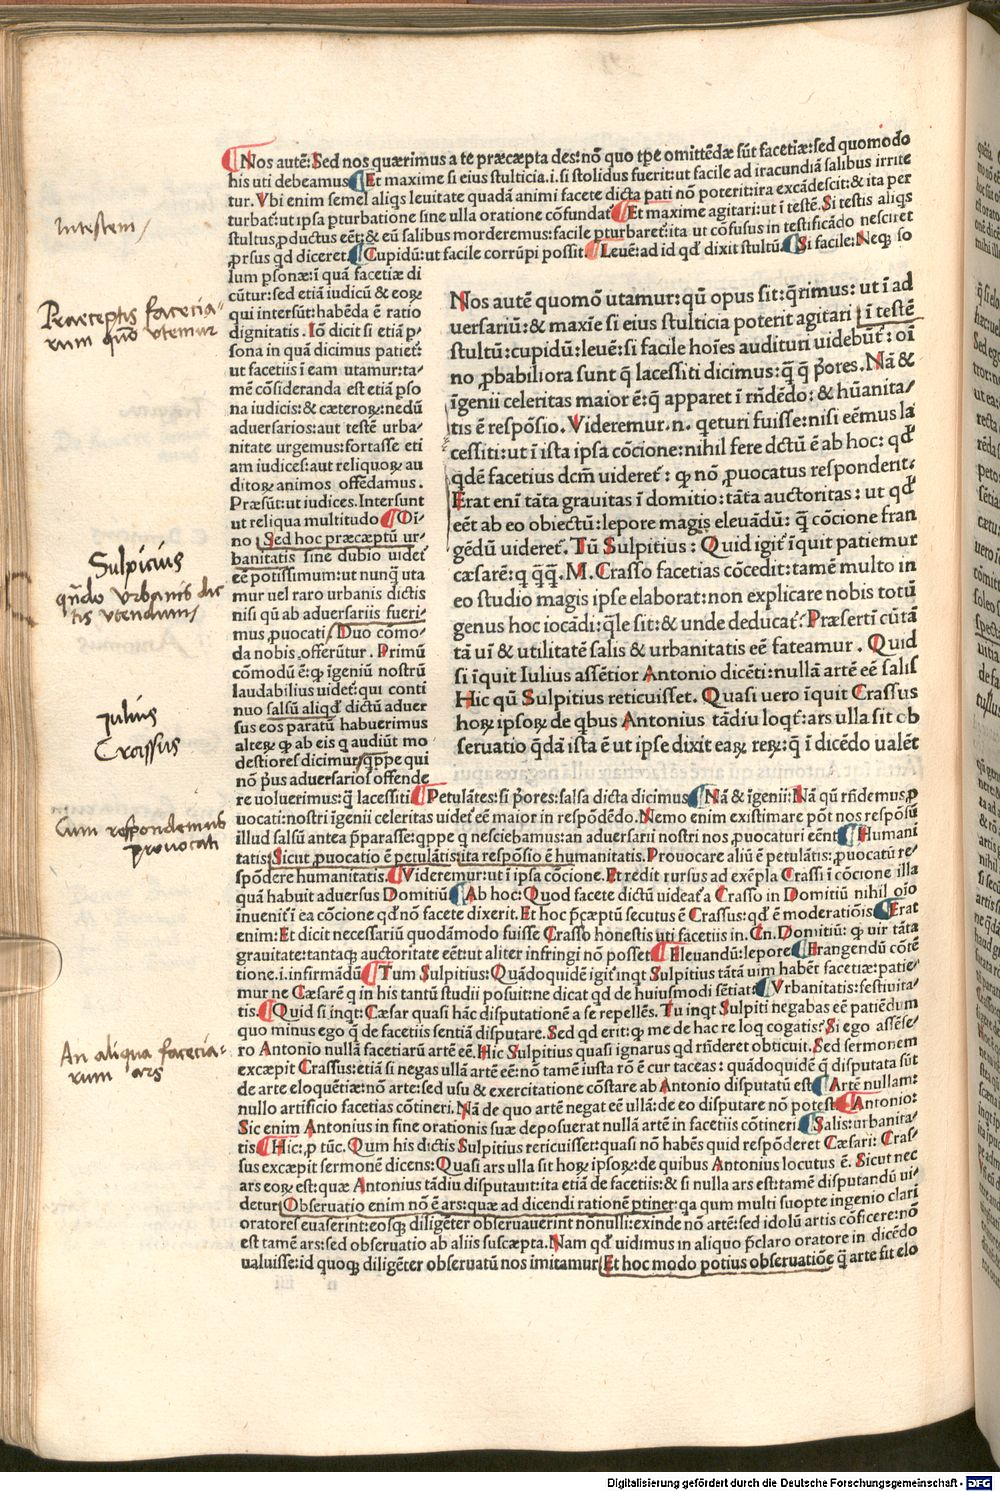 Nos autē: Sed nos quærimus a te præcæpta des: nō quo tp̄e omittēdæ sūt facetiæ: sed quomodo
his uti debeamus Et maxime si eius stulticia .i. si stolidus fuerit: ut facile ad iracundiā salibus irrite
tur. Vbi enim semel aliqs leuitate quadā animi facete dicta pati nō poterit: ira excādescit: & ita per
turbat: ut ipsa pturbatione sine ulla oratione cōfundat Et maxime agitari: ut ī testē. Si testis aliqs
stultus, pductus eēt: & eū salibus morderemus: facile pturbaret: ita ut cōfusus in testificādo nesciret
prsus qd diceret. Cupidū: ut facile corrūpi possit. Leuē: ad id qd dixit stultū. Si facile: Neq so
Intestem
lum psonæ: ī quā facetiæ di
cūtur: sed etiā iudicū & eoꝝ
qui intersūt: habēda ē ratio
dignitatis. Iō dicit si etiā p-
sona in quā dicimus patiet:
ut facetiis ī eam utamur: ta-
mē cōsideranda est etiā pso
na iudicis: & cæteroꝝ: nedū
aduersarios: aut testē urba-
nitate urgemus: fortasse eti
am iudices: aut reliquoꝝ au
ditoꝝ animos offēdamus.
Præsūt: ut iudices. Intersunt
ut reliqua multitudo Oi-
no Sed hoc præcæptū ur-
banitatis sine dubio uidet
eē potissimum: ut nunq uta
mur uel raro urbanis dictis
nisi qū ab aduersariis fueri-
mus puocati Duo cōmo-
da nobis offerūtur. Primū
cōmodū ē: q ingeniū nostrū
laudabilius uidet: qui conti
nuo salsū aliqd dictū aduer
sus eos paratū habuerimus
alteꝝ q ab eis q audiūt mo
destiores dicimur, qppe qui
nō p̄us aduersarios offende
Praeceptis facecia-
rum quō vtemur
Sulpicius
qn̄do vrbanis dic
tis vtendum
Iulius
Crassus
Nos autē quomō utamur: qū opus sit: q̄rimus: ut ī ad
uersariū: & maxīe si eius stulticia poterit agitari ī testē
stultū: cupidū: leuē: si facile hoīes audituri uidebūt: oī
no pbabiliora sunt q̄ lacessiti dicimus: q̄ q̄ p̄ores. Nā &
īgenii celeritas maior ē: q̄ apparet ī rn̄dēdo: & hūanita-
tis ē respōsio. Videremur .n. qeturi fuisse: nisi eēmus la
cessiti: ut ī ista ipsa cōcione: nihil fere dctū ē ab hoc: qd
qdē facetius dcm̄ uideret: q nō puocatus responderit.
Erat enī tāta grauitas ī domitio: tāta auctoritas: ut qd
eēt ab eo obiectū: lepore magis eleuādū: q̄ cōcione fran
gēdū uideret. Tū Sulpitius: Quid igit īquit patiemur
cæsarē: q q̄q̄. M. Crasso facetias cōcedit: tamē multo in
eo studio magis ipse elaborat: non explicare nobis totū
genus hoc iocādi: q̄le sit: & unde deducat. Præserti cūtā
tā uī & utilitatē salis & urbanitatis eē fateamur. Quid
si īquit Iulius assētior Antonio dicēti: nullā artē eē salis
Hic qū Sulpitius reticuisset. Quasi uero īquit Crassus
hoꝝ ipsoꝝ de qbus Antonius tādiu loqt: ars ulla sit ob
seruatio q̄dā ista ē ut ipse dixit eaꝝ reꝝ: q̄ ī dicēdo ualēt
re uoluerimus: q̄ lacessiti Petulātes: si p̄ores: salsa dicta dicimus Nā & īgenii: Nā qū rn̄demus p
uocati: nostri īgenii celeritas uidet eē maior in respōdēdo. Nemo enim existimare pōt nos respōsū
illud salsū antea p̄parasse: qppe q nesciebamus: an aduersarii nostri nos puocaturi eēnt Humani
tatis: Sicut puocatio ē petulātis: ita respōsio ē humanitatis. Prouocare aliū ē petulātis: puocatū re-
spōdere humanitatis. Videremur: ut ī ipsa cōcione. Et redit rursus ad exēpla Crassi ī cōcione illa
quā habuit aduersus Domitiū Ab hoc: Quod facete dictū uideat a Crasso in Domitiū nihil oīo
inuenit ī ea cōcione qd nō facete dixerit. Et hoc p̄cæptū secutus ē Crassus: qd ē moderatiōis Erat
enim: Et dicit necessariū quodāmodo fuisse Crasso honestis uti facetiis in. Cn. Domitiū: q uir tāta
grauitate: tantaq auctoritate eēt: ut aliter infringi nō posset Eleuandū: lepore Frangendū cōtē
tione .i. infirmādū Tum Sulpitius: Quādoquidē igit īnqt Sulpitius tātā uim habēt facetiæ: patie-
mur ne Cæsarē q in his tantū studii posuit: ne dicat qd de huiusmodi sētiat Vrbanitatis: festiuita-
tis. Quid si inqt: Cæsar quasi hāc disputationē a se repellēs. Tu inqt Sulpiti negabas eē patiēdum
quo minus ego q̄ de facetiis sentiā disputare. Sed qd erit: q me de hac re loq cogatis? Si ego assēse-
ro Antonio nullā facetiarū artē eē. Hic Sulpitius quasi ignarus qd rn̄deret obticuit. Sed sermonem
excæpit Crassus: etiā si negas ullā artē eē: nō tamē iusta rō ē cur taceas: quādoquidē q̄ disputata sūt
de arte eloquētiæ: nō arte: sed usu & exercitatione cōstare ab Antonio disputatū est Artē nullam:
nullo artificio facetias cōtineri. Nā de quo arte negat eē ullā: de eo disputare nō potest Antonio:
Sic enim Antonius in fine orationis suæ deposuerat nullā artē in facetiis cōtineri Salis: urbanita-
tis Hic: p tūc. Qum his dictis Sulpitius reticuisset: quasi nō habēs quid respōderet Cæsari: Cras-
sus excæpit sermonē dicens: Quasi ars ulla sit hoꝝ ipsoꝝ: de quibus Antonius locutus ē. Sicut nec
ars eoꝝ est: quæ Antonius tādiu disputauit: ita etiā de facetiis: & si nulla ars est: tamē disputandū ui-
detur Obseruatio enim nō ē ars: quæ ad dicendi rationē ptinet: qa qum multi suopte ingenio clari
oratores euaserint: eosq diligēter obseruauerint nonulli: exinde nō artē: sed idolū artis cōficere: nō
est tamē ars: sed obseruatio ab aliis suscæpta. Nam qd uidimus in aliquo p̄claro oratore in dicēdo
ualuisse: id quoq diligēter obseruatū nos imitamur Et hoc modo potius obseruatiōe q̄ arte sit elo
Cum respondemus
prouocati
An aliqua facecia-
rum ars
Digitalisierung gefördert durch die Deutsche Forschungsgemeinschaft - DFG